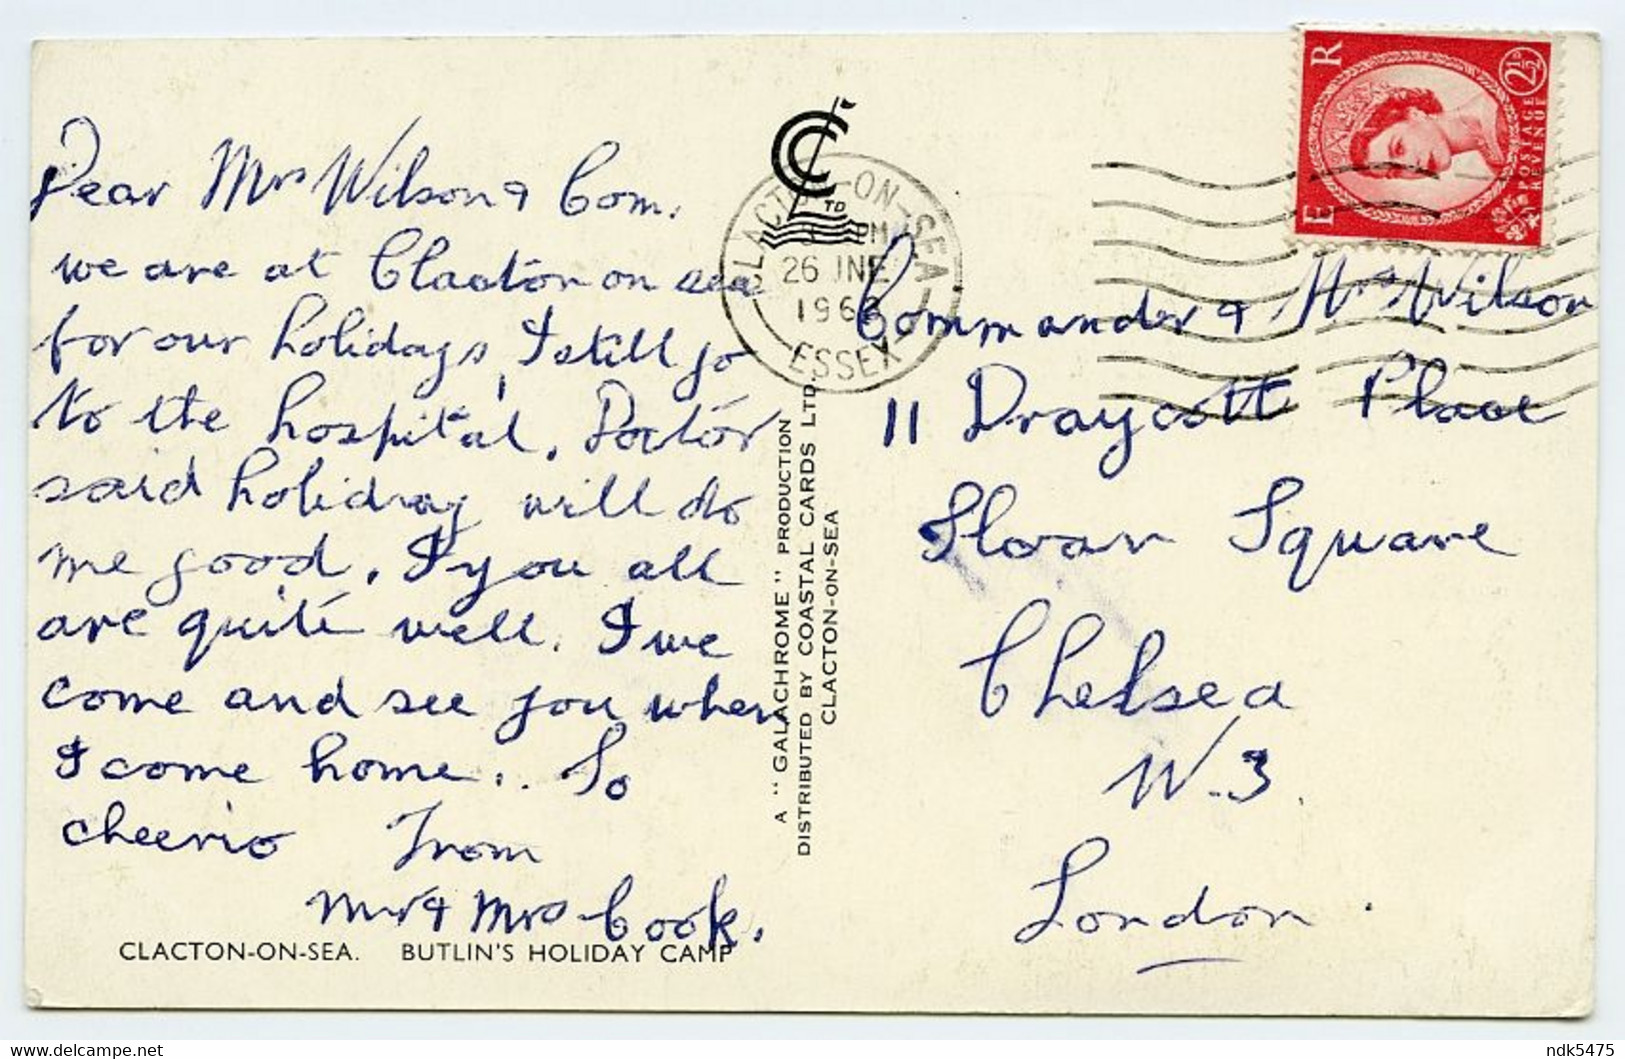 Dear Mrs Wilson & Com.
we are at Clacton on sea
for our holidays, I still go
to the hospital. Doctor
said holiday will do
me good. I you all
are quite well. I we
come and see you when
I come home. So
cheerio From
Mr & Mrs Cook.
CLACTON-ON-SEA. BUTLIN'S HOLIDAY CAMP
A "GALACHROME" PRODUCTION
DISTRIBUTED BY COASTAL CARDS LTD.
CLACTON-ON-SEA
CC
LTD
CLACTON-ON-SEA
PM
26 JNE
ESSEX
E R
2½D
POSTAGE
REVENUE
Commander & Mrs Wilson
11 Draycott Place
Sloan Square
Chelsea
W.3.
London.
ndk5475